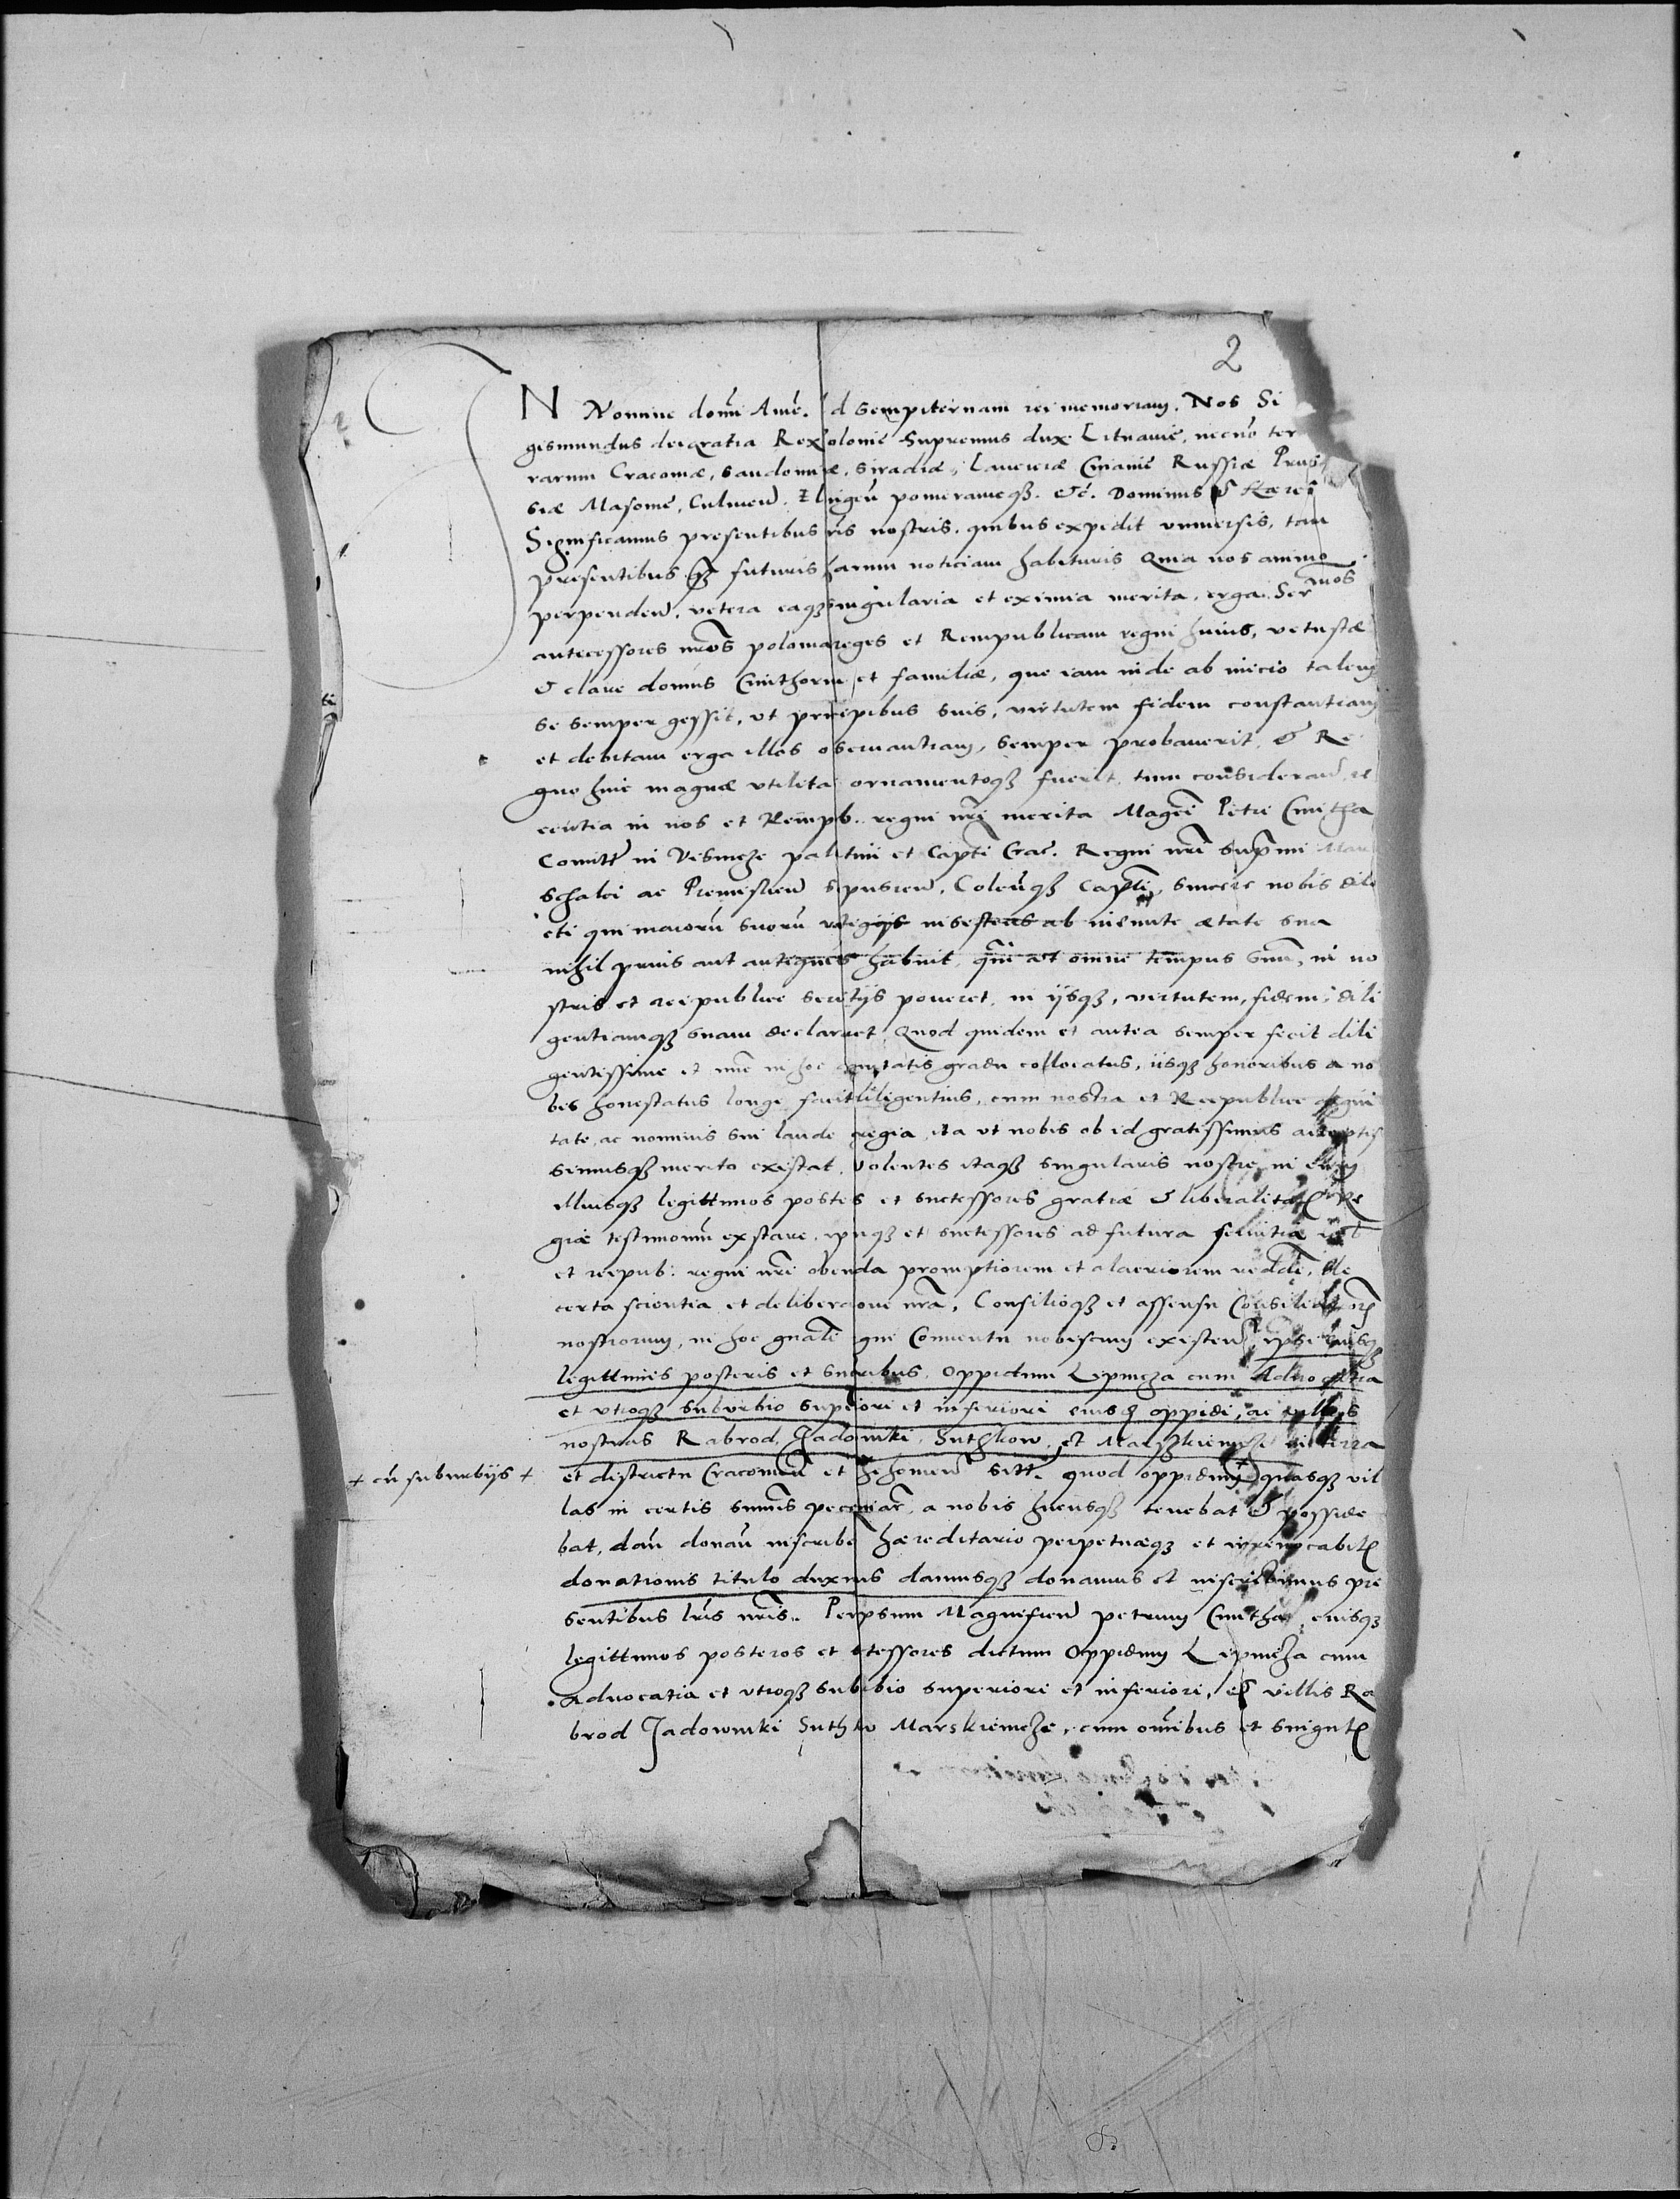 2
N Nomine domi Ame. d sempiternam rei memoriam. Nos Si
gismundus dei gratia Rex oloniē Supremus dux Lituaniē, necnō ter
rarum Cracouiæ, Sandomiæ, Siradiæ, Lanciciæ Cuiauiē Russiæ Prus
siæ Masouiē, Culmen. Elbigeñ pomeraniæqз. &c. Dominus & Hæres
Significamus presentibus ris nostris. quibus expedit vniuersis, tam
presentibus qз futuris harum noticiam habituris Quia nos animo
perpenden. vetera eaqз singularia et eximia merita, erga Sermos
antecessores nros polonia reges et Rempublicam regni huius, vetustæ
& claræ domus Cmithorum et familiæ, que iam inde ab inicio talem
se semper gessit, vt principibus suis, virtutem fidem constantiam
et debitam erga illos obseruantiam, semper probauerit. & Re
gno huic magnæ vtilita ornamentoqз fuerit. tum considerand. re
centia in nos et Rempb. regni nri merita Magci Petri Cmitha
Comitt in Visnicze palatini et Capti Crac. Regni nri supmi Mar
schalci ac Premislien Scepusien. Colenqз Capti, sincere nobis dile
cti qui maiorū suorū vestigijs insistens ab ineunte ætate sua
nihil prius aut antiquius habuit, qm vt omne tempus suū, in no
stris et reipublice seruitijs poneret, in ijsqз, virtutem, fidem, dili
gentiamqз suam declararet. Quod quidem et antea semper fecit dili
gentissime et nūc in hoc dignitatis gradu collocatus, iisqз honoribus a no
bis honestatus longe facit diligentius, cum nostra et Reipublice digni
tate, ac nominis sui laude egregia, ita vt nobis ob id gratissimus acceptis
simusqз merito existat. Volentes itaqз singularis nostre in eum
illiusqз legittimos postes et successores gratiæ & liberalitatis Re
giæ testimoniū exstare, ipuqз et successores ad futura seruitia
et reipub: regni nri obeunda promptiorem et alacriorem reddere. De
certa scientia et deliberaōne nrā, Consilioqз et assensu Consiliariorū
nostrorum, in hoc gnāli gni Conuentu nobiscum existen. ipsi eiusqз
legittimis posteris et sucribus. Oppidum Lipnicza cum Aduocatia
et vtroqз suburbio superiori et inferiori eiusd oppidi, ac villas
nostras Rabrod, Jadowniki, Suthkow, et Marszkienicze in terra
+ cū suburbijs + et districtu Cracouien et hcionen sitt. quod oppidum + quasqз vil
las in certis summis pecuniar, a nobis hucusqз tenebat & posside
bat, dan donan inscribe hæreditario perpetuæqз et irreuocabilis
donationis titulo duximus damusqз donamus et inscribimus pre
sentibus lris nris. Per ipsum Magnificū petrum Cmitha, eiusqз
legittimos posteros et ccessores dictum Oppidum Lipnicza cum
Aduocatia et vtroqз subibio superiori et inferiori, et villis Ra
brod Jadowniki Suthko Marskienicze, cum omibus et singulis